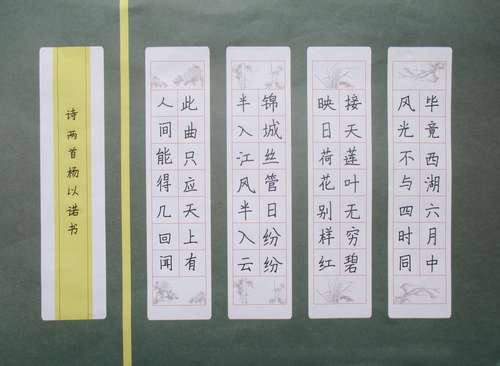 毕竟西湖六月中
风光不与四时同
接天莲叶无穷碧
映日荷花别样红
锦城丝管日纷纷
半入江风半入云
此曲只应天上有
人间能得几回闻
诗两首杨以诺书